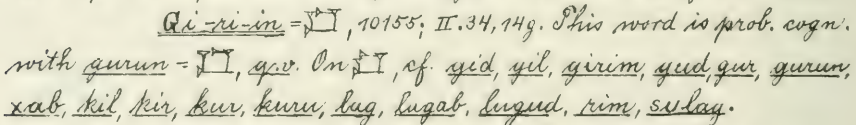 Gi-ri-in = 𒆸, 10155; II.34,14g. This word is prob. cogn.
with gurun = 𒆸, q.v. On 𒆸, cf. gid, gil, girim, gud, gur, gurun,
xab, kil, kir, kur, kuru, lag, lagab, lugud, rim, sulag.